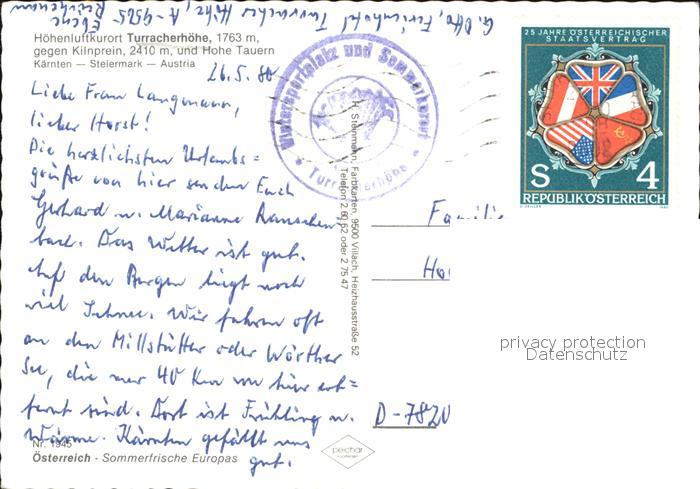 G. Otto, Ferienhotel Turracher Höhe, A-9565
Ebene
Reichenau
Höhenluftkurort Turracherhöhe, 1763 m,
gegen Kilnprein, 2410 m, und Hohe Tauern
Kärnten — Steiermark — Austria
26.5.80
Liebe Frau Langmann,
lieber Horst!
Die herzlichsten Urlaubs=
grüße von hier senden Euch
Gerhard u. Marianne Rauschen
bach. Das Wetter ist gut.
Auf den Bergen liegt noch
viel Schnee. Wir fahren oft
an den Millstätter oder Wörther
See, die nur 40 Km von hier ent=
fernt sind. Dort ist Frühling u.
Wärme. Kärnten gefällt uns
gut.
Nr. 1945
Österreich - Sommerfrische Europas
pechar
Wintersportplatz und Sommerkurort
Turracherhöhe
H. Steinmann, Farbkarten, 9500 Villach, Heizhausstraße 52
Telefon 2 60 62 oder 2 75 47
25 JAHRE ÖSTERREICHISCHER
STAATSVERTRAG
S 4
REPUBLIK ÖSTERREICH
Famili
Ho
privacy protection
Datenschutz
D-7820